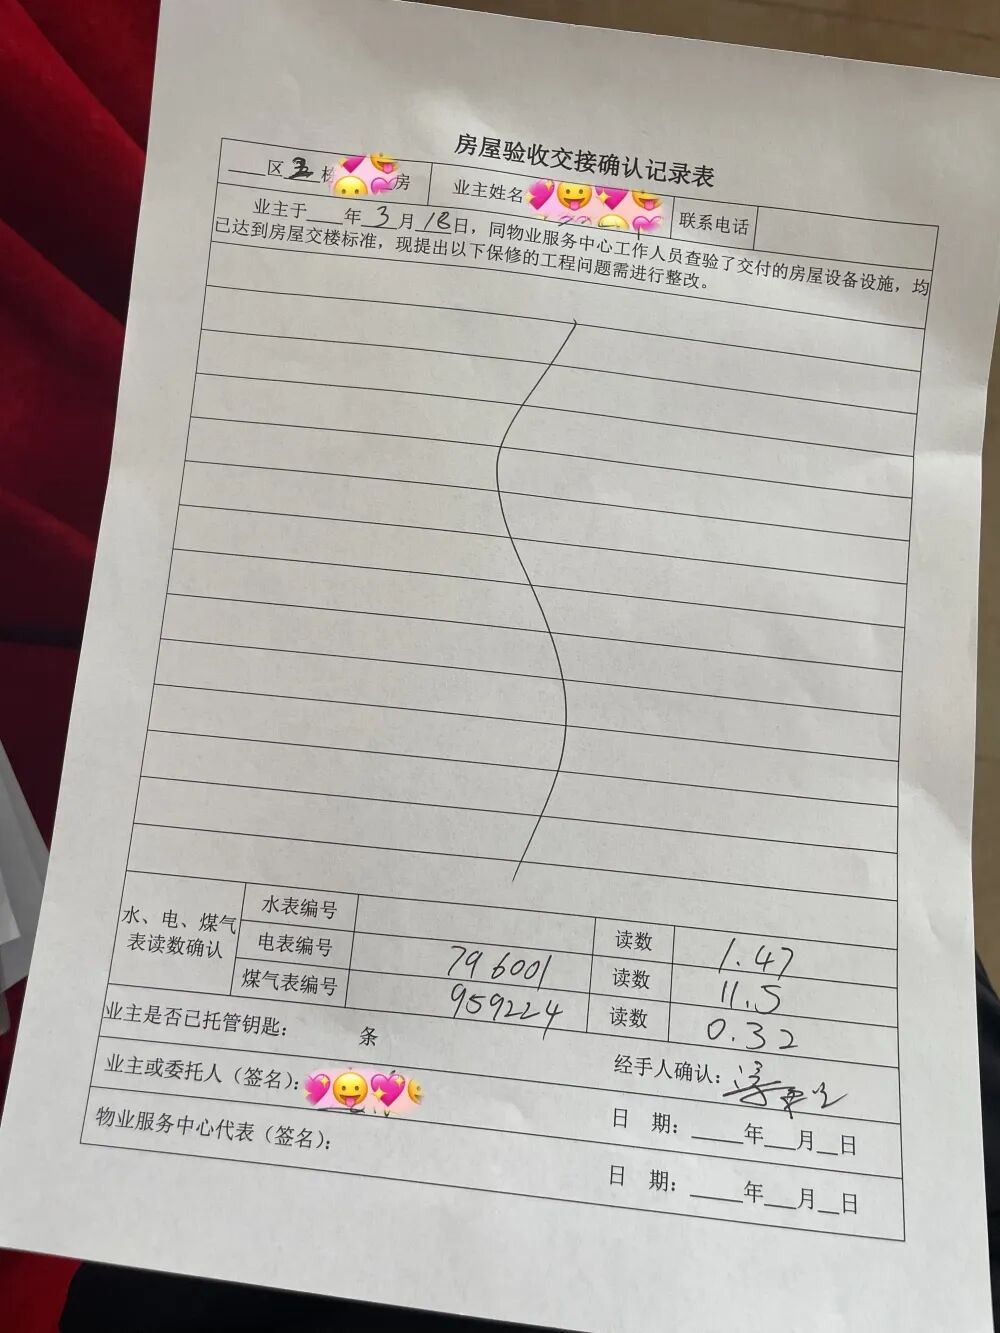 房屋验收交接确认记录表
区 五 栋 房 业主姓名 联系电话
业主于 年 3 月 18 日，同物业服务中心工作人员查验了交付的房屋设备设施，均
已达到房屋交楼标准，现提出以下保修的工程问题需进行整改。
水、电、煤气
表读数确认
水表编号 读数 1.47
电表编号 796001 读数 11.5
煤气表编号 959224 读数 0.32
业主是否已托管钥匙： 条 经手人确认：
业主或委托人（签名）：
日 期： 年 月 日
物业服务中心代表（签名）：
日 期： 年 月 日